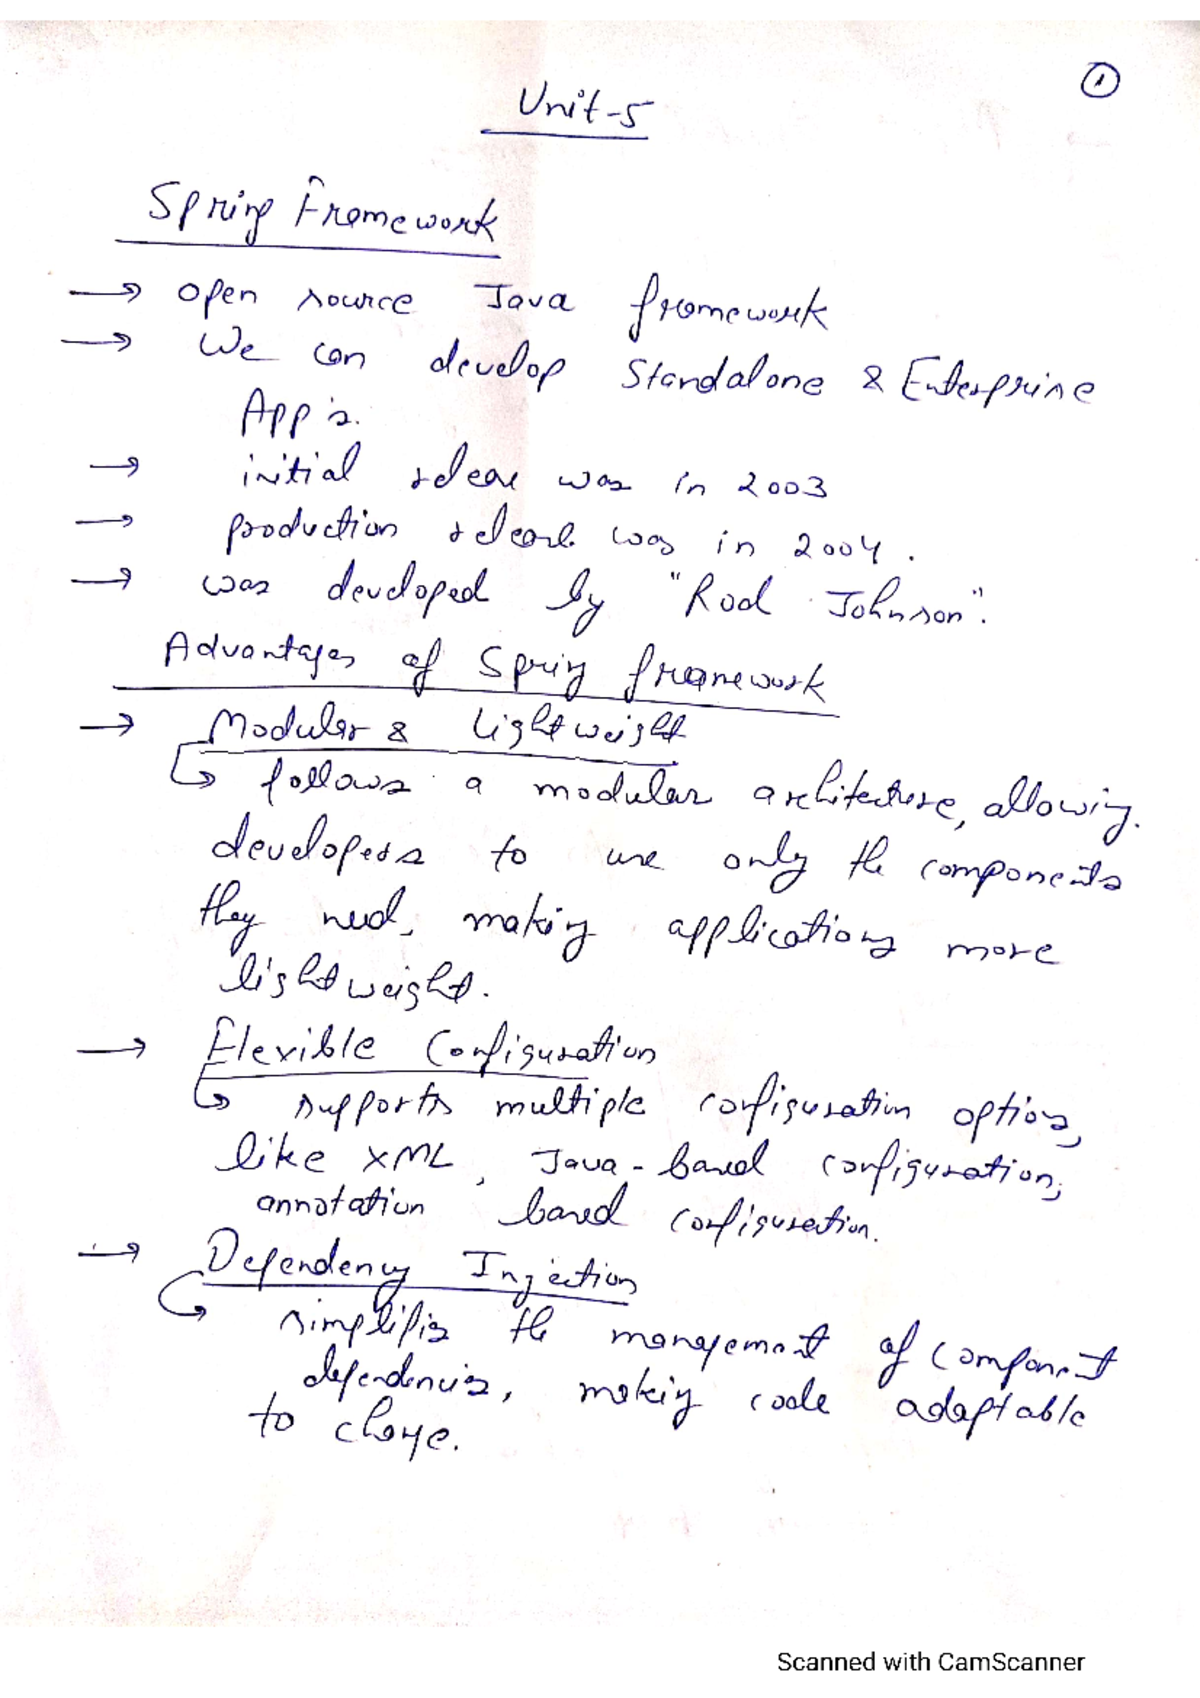 ①
Unit-5
Spring Framework
→ open source Java framework
→ We can develop Standalone & Enterprise
App's.
→ initial release was in 2003
→ production release was in 2004.
→ was developed by "Rod Johnson".
Advantages of Spring framework
→ Modular & Lightweight
↳ follows a modular architecture, allowing
developers to use only the components
they need, making applications more
lightweight.
→ Flexible Configuration
↳ supports multiple configuration options,
like XML, Java-based configuration,
annotation based configuration.
→ Dependency Injection
↳ simplifies the management of component
dependencies, making code adaptable
to change.
Scanned with CamScanner